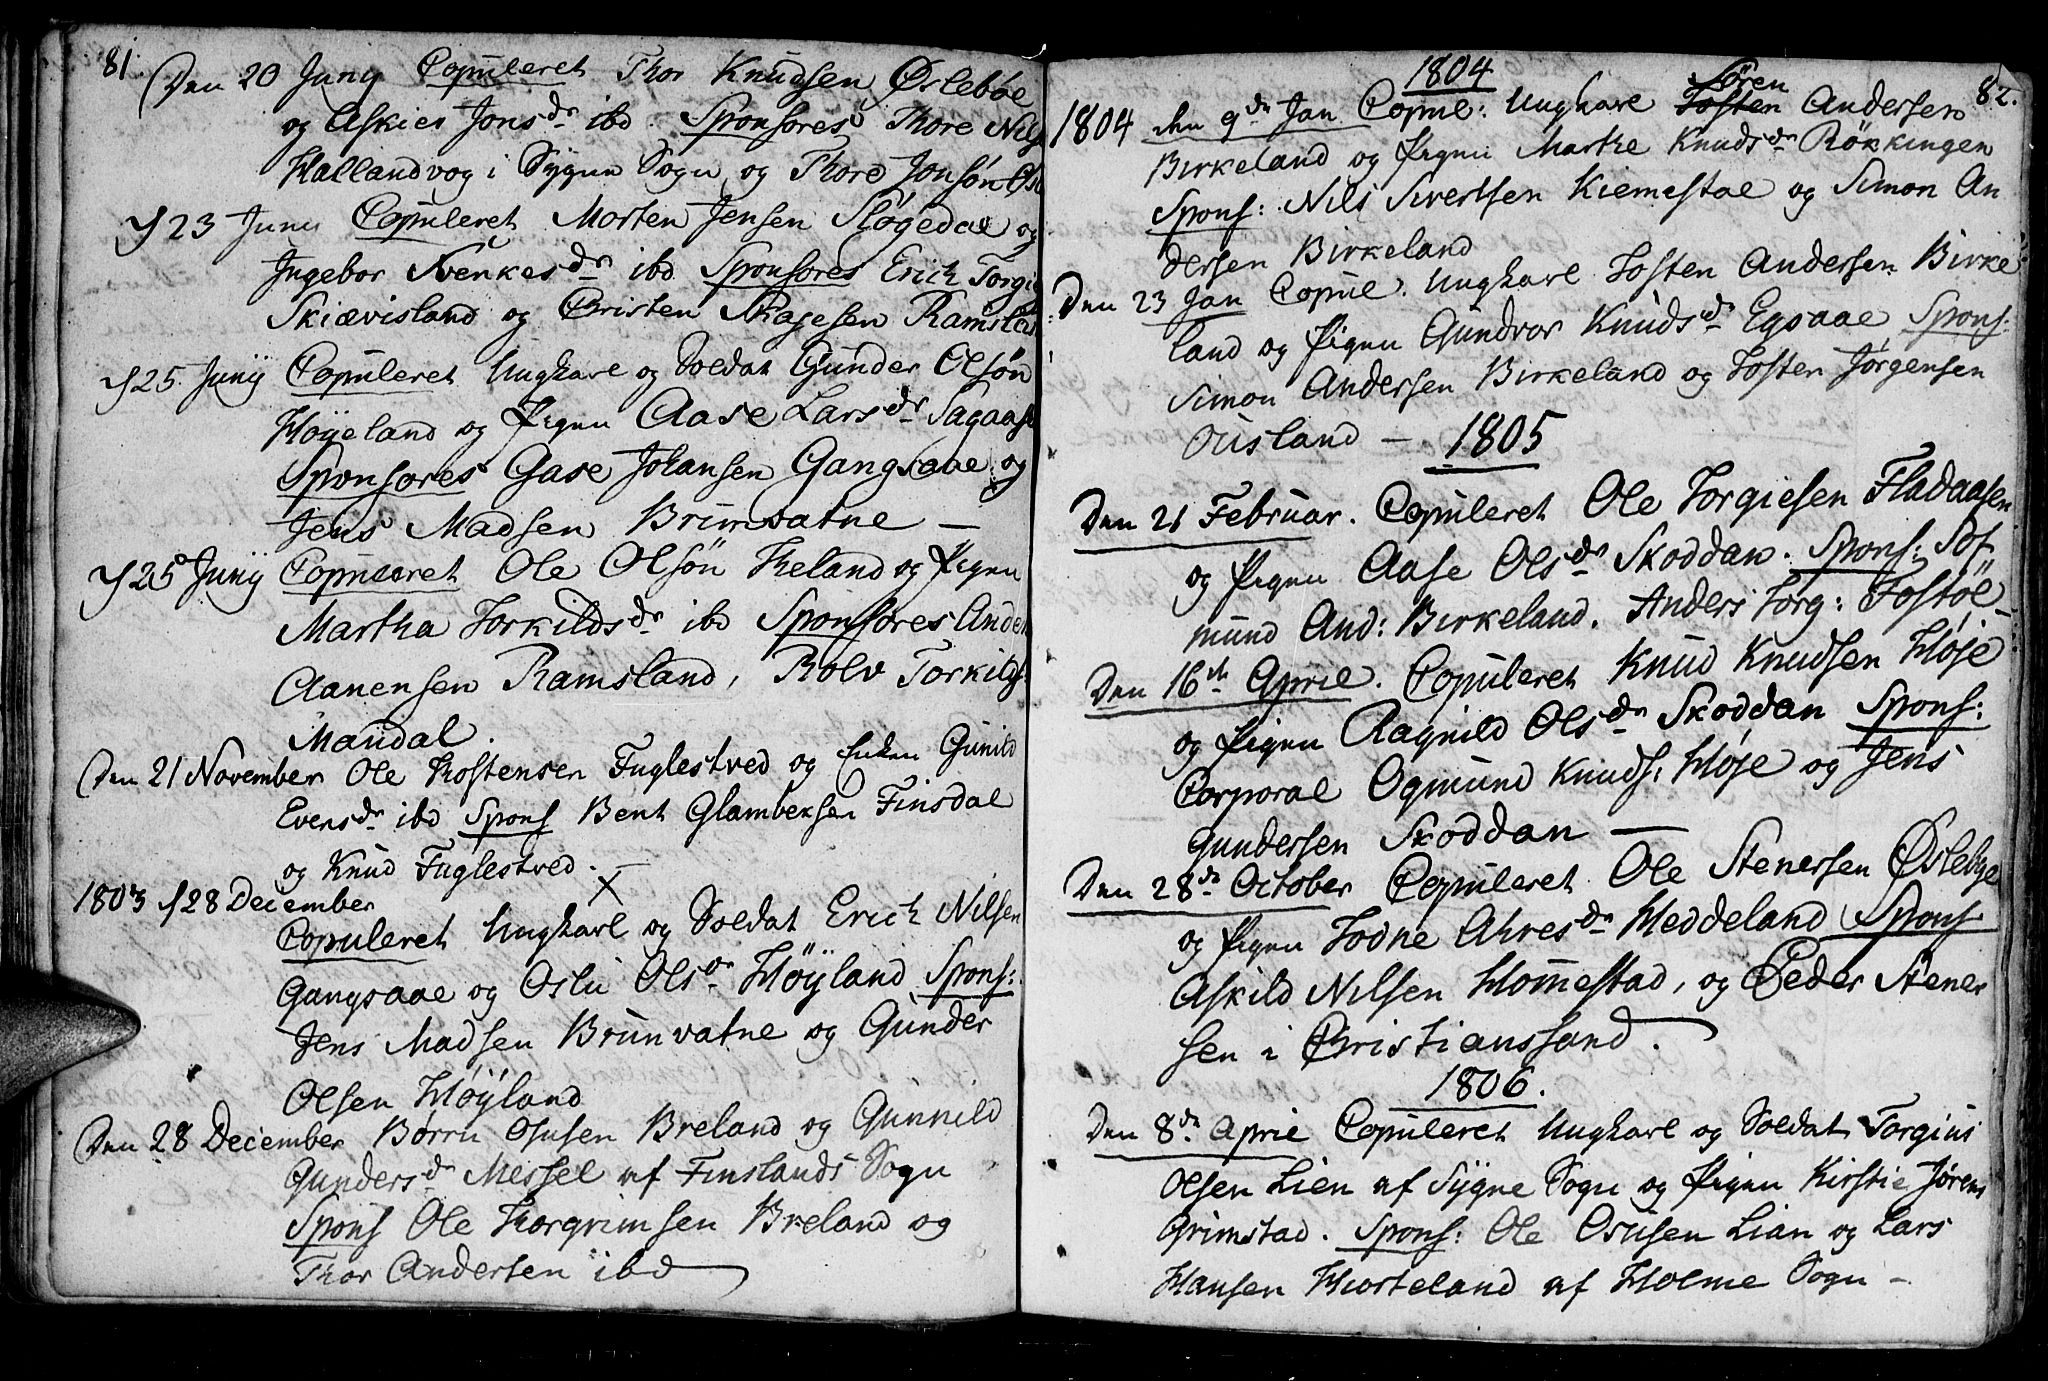 81.
Den 20 Juny Copuleret Thor Knudsen Øslebøe
og Askier Jonsdr ibd. Sponsores Thore Nils
Hallandvog i Sygne Sogn og Thore Jonsøn Øs
d 23 Juny Copuleret Morten Jensen Sløgedal og
Ingebor Svenkesdr ibd Sponsores Erich Torgi
Skiævisland og Christen Aagesen Ramsla
d 25. Junij Copuleret Ungkarl og Soldat Gunder Olsøn
Høyeland og Pigen Aase Larsdr Sagaas
Sponsores Gase Johansen Gangsaae og
Jens Madsen Brunvatne —
d 25 Junij Copuleret Ole Olsøn Heland og Pigen
Martha Torkildsdr ibd Sponsores Ande
Aanensen Ramsland, Rolv Torkilds
Mandal.
Den 21 November Ole Thostensen Fuglestved og Enken Gunild
Evensdr ibd Spons Bent Glambeksen Finsdal
og Knud Fuglestved. —
1803 d 28 December
Copuleret Ungkarl og Soldat Erich Nilsen
Gangsaae og Osli Olsdr Høyland Spons:
Jens Madsen Brunvatne og Gunder
Olsen Høyland
Den 28 December Børru Osusen Breland og Gunnild
Gundersdr Messel af Finslands Sogn
Spons Ole Thorgrimsen Breland og
Thor Andersen ibd
82.
1804
1804 den 9de Jan Copul: Ungkarl Tosten Søren Andersen
Birkeland og Pigen Marthe Knudsdr Røkkingen
Spons: Nils Sivertsen Kiemestal og Simon An
dersen Birkeland
Den 23 Jan Copul. Ungkarl Tosten Andersen Birke
land og Pigen Gundvor Knudsdr Egsaae Spons:
Simon Andersen Birkeland og Tosten Jørgensen
Ousland — 1805
Den 21 Februar. Copuleret Ole Torgiesen Fladaasen
og Pigen Aase Olsdr Skoddan. Spons: Sof
mund And: Birkeland. Anders Torg: Fostøl
Den 16de April. Copuleret Knud Knudsen Høje
og Pigen Ragnild Olsdr Skoddan Spons:
Corporal Ogmund Knuds: Høje og Jens
Gundersen Skoddan —
Den 28de October Copuleret Ole Stenersen Øslebye
og Pigen Todne Ahresdr Heddeland Spons
Askild Nilsen Homestad, og Peder Stener
sen i Christianssand.
1806.
Den 8de April Copuleret Ungkarl og Soldat Torgius
Olsen Lien af Sygne Sogn og Pigen Kirstie Jørens
Grimstad. Spons: Ole Osusen Lian og Lars
Hansen Hiorteland af Holme Sogn —